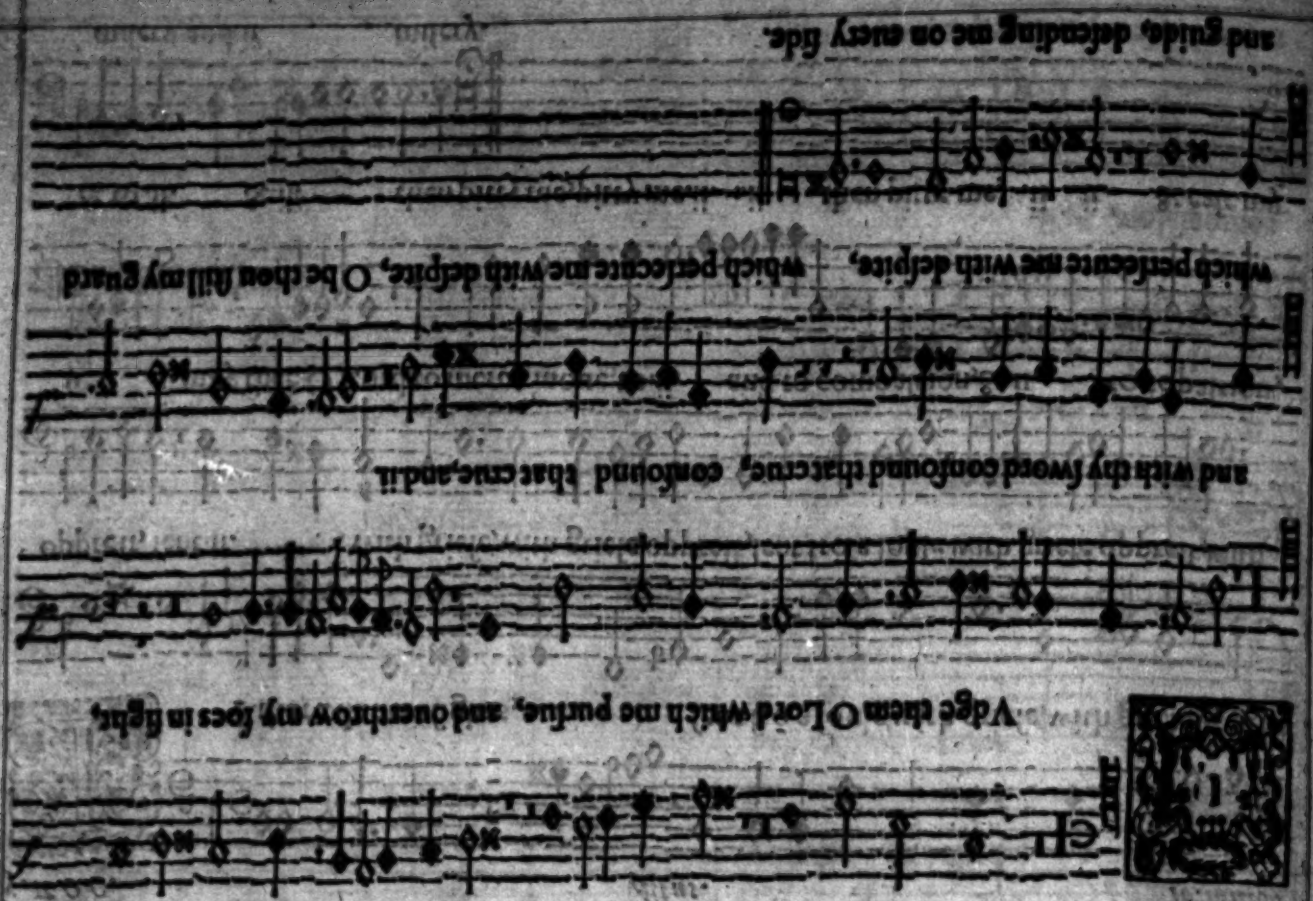 IVdge them O Lord which me pursue, and ouerthrow my foes in fight,
and with thy sword confound that crue, confound that crue, and ii.
which persecute me with despite, which persecute me with despite, O be thou still my guard
and guide, defending me on euery side.